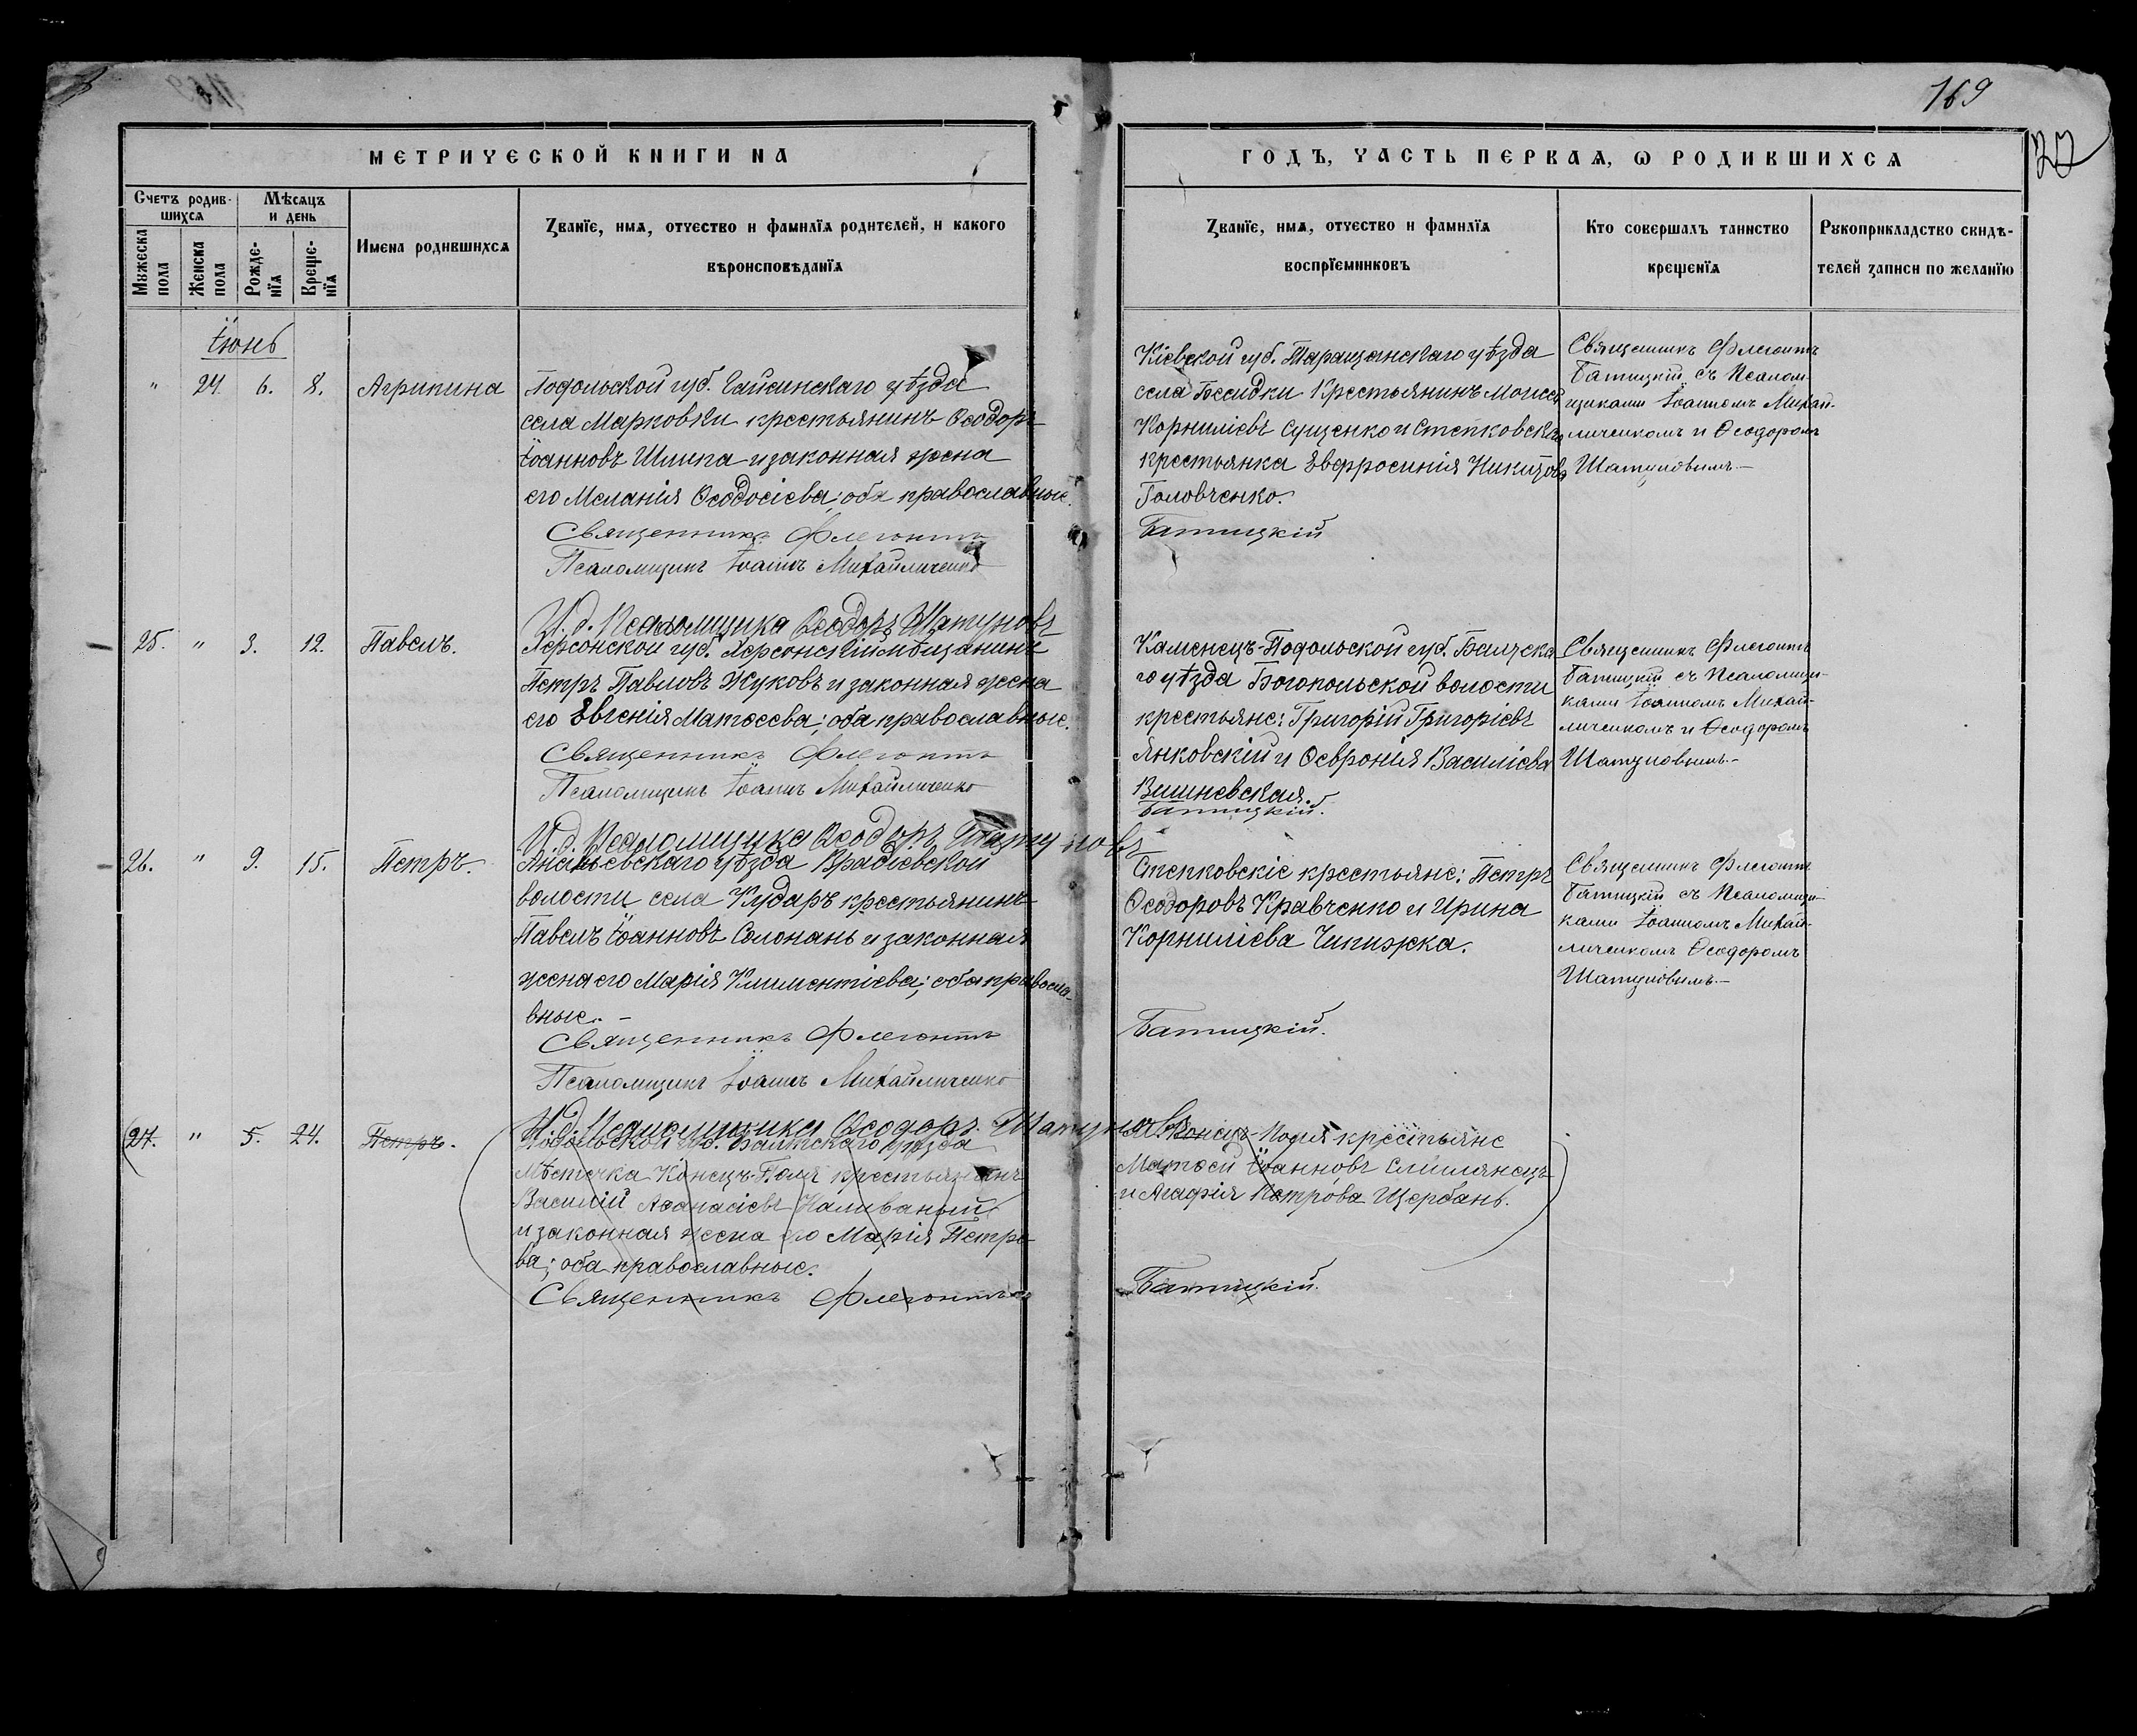 169
27
МЕТРИЧЕСКОЙ КНИГИ НА
ГОДЪ, ЧАСТЬ ПЕРВАЯ, Ѡ РОДИВШИХСЯ
Счетъ родив-
шихся
Мѣсяцъ
и день
Мужеска
пола
Женска
пола
Рожде-
нїя
Креще-
нїя
Имена родившихся
Званїе, имя, отчество и фамилїя родителей, и какого
вѣроисповѣданїя
Званїе, имя, отчество и фамилїя
воспрїемниковъ
Кто совершалъ таинство
крещенїя
Рукоприкладство свидѣ-
телей записи по желанїю
Іюнь
" 24. 6. 8. Агрипина
Подольской губ. Гайсинскаго уѣзда
села Марковки крестьянинъ Ѳеодоръ
Іоанновъ Шлипа и законная жена
его Меланія Ѳеодосіева; оба православные.
Священникъ Флегонтъ
Псаломщикъ Іоаннъ Михайличенко
И. д. Псаломщика Ѳеодоръ Шатуновъ
Кіевской губ. Таращанскаго уѣзда
села Бесидки Крестьянинъ Моисей
Корниліевъ Сущенко и Степковская
крестьянка Евфросинія Никитова
Головченко.
Батицкій
Священникъ Флегонтъ
Батицкій съ Псалом-
щиками Іоанномъ Михай-
личенкомъ и Ѳеодоромъ
Шатуновымъ.-
25. " 3. 12. Павелъ.
Херсонской губ. Херсонскій мѣщанинъ
Петръ Павловъ Жуковъ и законная жена
его Евгенія Матѳеева; оба православные.
Священникъ Флегонтъ
Псаломщикъ Іоаннъ Михайличенко
И. д. Псаломщика Ѳеодоръ Шатуновъ
Каменецъ-Подольской губ. Балтска
го уѣзда Богопольской волости
крестьяне: Григорій Григоріевъ
Янковскій и Ѳевронія Василіева
Вишневская.
Батицкій.
Священникъ Флегонтъ
Батицкій съ Псаломщи-
ками Іоанномъ Михай-
личенкомъ и Ѳеодоромъ
Шатуновымъ.-
26. " 9. 15. Петръ.
Ананьевскаго уѣзда Врадіевской
волости села Кударъ крестьянинъ
Павелъ Іоанновъ Солонань и законная
жена его Марія Климентіева; оба правосла-
вные.-
Священникъ Флегонтъ
Псаломщикъ Іоаннъ Михайличенко
И. д. Псаломщика Ѳеодоръ Шатуновъ
Степковскіе крестьяне: Петръ
Ѳеодоровъ Кравченко и Ирина
Корниліева Чипижка.
Батицкій.
Священникъ Флегонтъ
Батицкій съ Псаломщи-
ками Іоанномъ Михай-
личенкомъ Ѳеодоромъ
Шатуновымъ.-
27. " 5. 24. Петръ.
Подольской губ. Балтскаго уѣзда
Мѣстечка Конецъ-Поля крестьянинъ
Василій Аѳанасіевъ Наливаный
и законная жена его Марія Петро
ва; оба православные.
Священникъ Флегонтъ
М. Конецъ-Поля крестьяне
Матѳей Іоанновъ Смилянецъ
и Агафія Петрова Щербань.
Батицкій.